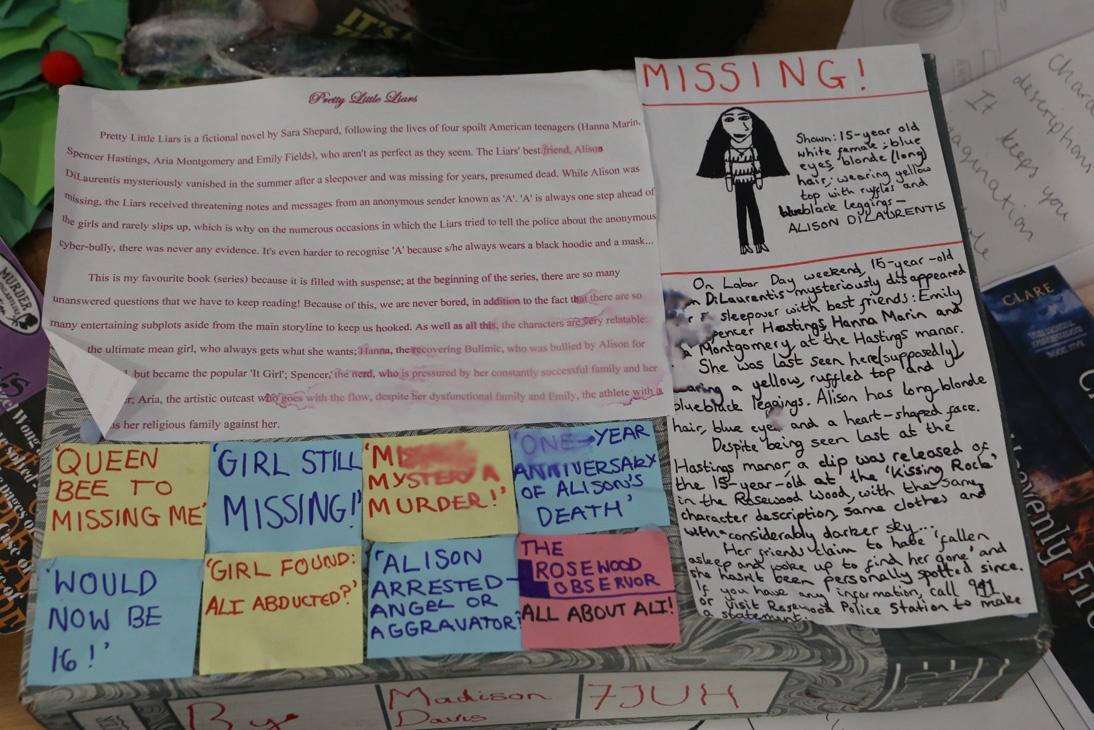 Pretty Little Liars
Pretty Little Liars is a fictional novel by Sara Shepard, following the lives of four spoilt American teenagers (Hanna Marin,
Spencer Hastings, Aria Montgomery and Emily Fields), who aren't as perfect as they seem. The Liars' best friend, Alison
DiLaurentis mysteriously vanished in the summer after a sleepover and was missing for years, presumed dead. While Alison was
missing, the Liars received threatening notes and messages from an anonymous sender known as 'A'. 'A' is always one step ahead of
the girls and rarely slips up, which is why on the numerous occasions in which the Liars tried to tell the police about the anonymous
cyber-bully, there was never any evidence. It's even harder to recognise 'A' because s/he always wears a black hoodie and a mask...
This is my favourite book (series) because it is filled with suspense; at the beginning of the series, there are so many
unanswered questions that we have to keep reading! Because of this, we are never bored, in addition to the fact that there are so
many entertaining subplots aside from the main storyline to keep us hooked. As well as all this, the characters are very relatable:
the ultimate mean girl, who always gets what she wants; Hanna, the recovering Bulimic, who was bullied by Alison for
but became the popular 'It Girl'; Spencer, the nerd, who is pressured by her constantly successful family and her
Aria, the artistic outcast who goes with the flow, despite her dysfunctional family and Emily, the athlete with a
her religious family against her.
MISSING!
Shown: 15-year old
white female; blue
eyes, blonde (long)
hair; wearing yellow
top with ruffles and
black leggings-
ALISON DILAURENTIS
On Labor Day weekend, 15-year-old
DiLaurentis mysteriously disappeared
sleepover with best friends: Emily
Spencer Hastings, Hanna Marin and
Montgomery, at the Hastings manor.
She was last seen here (supposedly)
a yellow, ruffled top and
black leggings. Alison has long-blonde
hair, blue eyes and a heart-shaped face.
Despite being seen last at the
Hastings manor, a clip was released of
the 15-year-old at the 'Kissing Rock'
in the Rosewood Wood, with the same
character description, same clothes and
with considerably darker sky...
Her friends claim to have 'fallen
asleep and woke up to find her gone' and
she hasn't been personally spotted since.
If you have any information, call 911
or visit Rosewood Police Station to make
a statement.
'QUEEN
BEE TO
MISSING ME'
'GIRL STILL
MISSING!'
MYSTERY A
MURDER!'
'ONE-YEAR
ANNIVERSARY
OF ALISON'S
DEATH'
'WOULD
NOW BE
16!'
'GIRL FOUND:
ALI ABDUCTED?'
'ALISON
ARRESTED-
ANGEL OR
AGGRAVATOR?'
THE
ROSEWOOD
OBSERVOR
ALL ABOUT ALI!
By
Madison
Davis
7JUH
descriptions
It keeps you
CLARE
MURDER